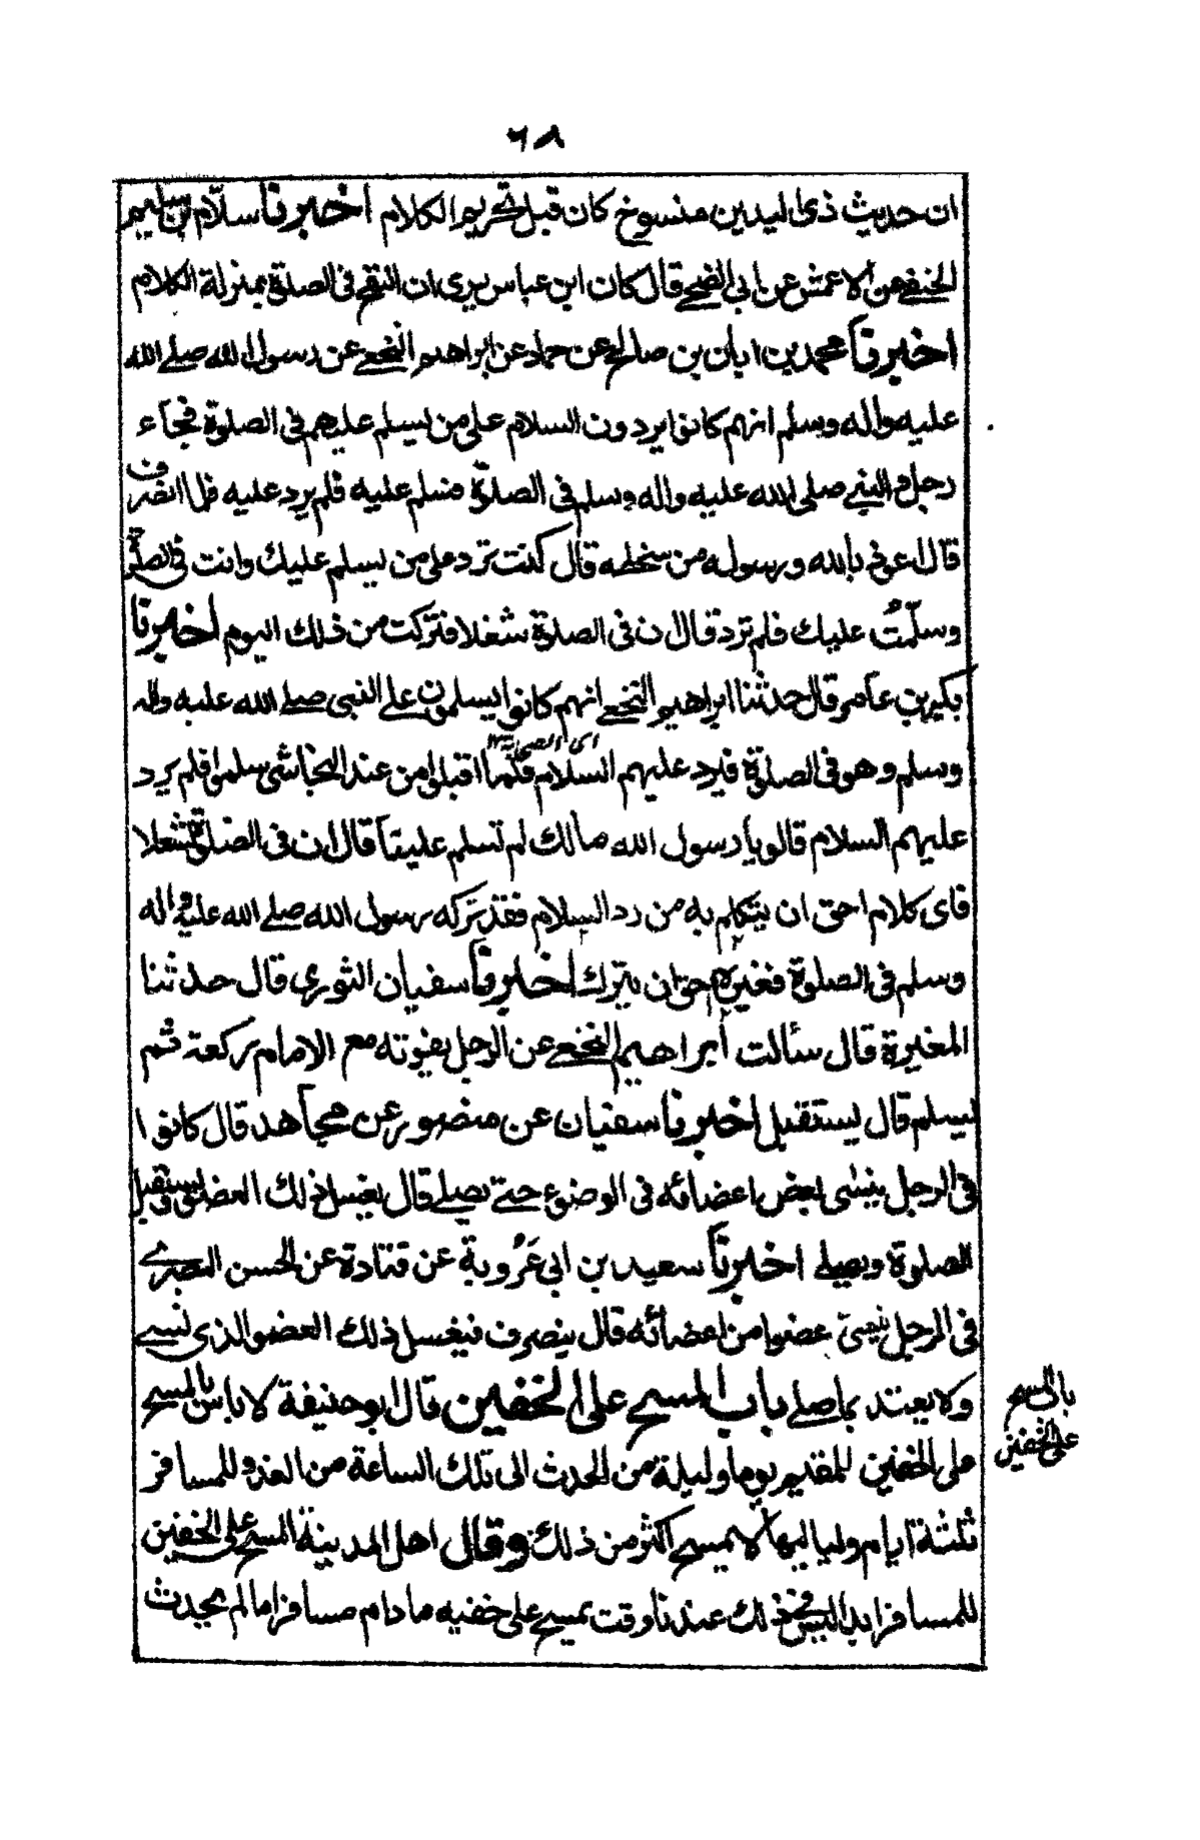 ٦٨
ان حديث ذى اليدين منسوخ كان قبل تحريم الكلام اخبرنا سلام بن سليم
الحنفي عن الاعمش عن ابي الضحى قال كان ابن عباس يرى ان النفخ فى الصلوة بمنزلة الكلام
اخبرنا محمد بن ابان بن صالح عن حماد عن ابراهيم النخعي عن رسول الله صلے الله
عليه واله وسلم انهم كانوا يردون السلام على من يسلم عليهم فى الصلوة فجآء
رجل والنبي صلى الله عليه واله وسلم فى الصلوة فسلم عليه فلم يرد عليه فلما انصرف
قال اعوذ بالله ورسوله من سخطه قال كنت ترد على من يسلم عليك وانت فى الصلوة
وسلّمتُ عليك فلم ترد قال ان فى الصلوة شغلا فتركت من ذلك اليوم اخبرنا
بكير بن عامر قال حدثنا ابراهيم النخعے انهم كانوا يسلمون على النبى صلے الله عليه واله
اى الصحابة ١٢
وسلم وهو فى الصلوة فيرد عليهم السلام فلما اقبلوا من عند النجاشى سلموا فلم يرد
عليهم السلام قالوا يا رسول الله مالك لم تسلم علينا قال ان فى الصلوة شغلا
فاى كلام احق ان يتكلم به من رد السلام فقد تركه رسول الله صلے الله عليه واله
وسلم فى الصلوة فغيره احق ان يترك اخبرنا سفيان الثورى قال حدثنا
المغيرة قال سألت ابراهيم النخعے عن الرجل يفوته مع الامام ركعة ثم
يسلم قال يستقبل اخبرنا سفيان عن منصور عن مجاهد قال كانوا
فى الرجل ينسٰى بعض اعضائه فى الوضوء حتے يصلے قال يغسل ذلك العضو ويستقبل
الصلوة ويصلے اخبرنا سعيد بن ابى عَرُوبة عن قتادة عن الحسن البصرے
فى الرجل ينسى عضوا من اعضائه قال ينصرف فيغسل ذلك العضو الذى نسے
ولا يعتد بما صلے باب المسح على الخفين قال ابو حنيفة لا باس بالمسح
على الخفين للمقيم يوما وليلة من الحدث الى تلك الساعة من الغد وللمسافر
ثلثة ايام ولياليها لا يمسح اكثر من ذلك وقال اهل المدينة المسح على الخفين
للمسافر ذلك عندنا وقت يمسح على خفيه ما دام مسافرا ما لم يحدث
باب المسح
على الخفين